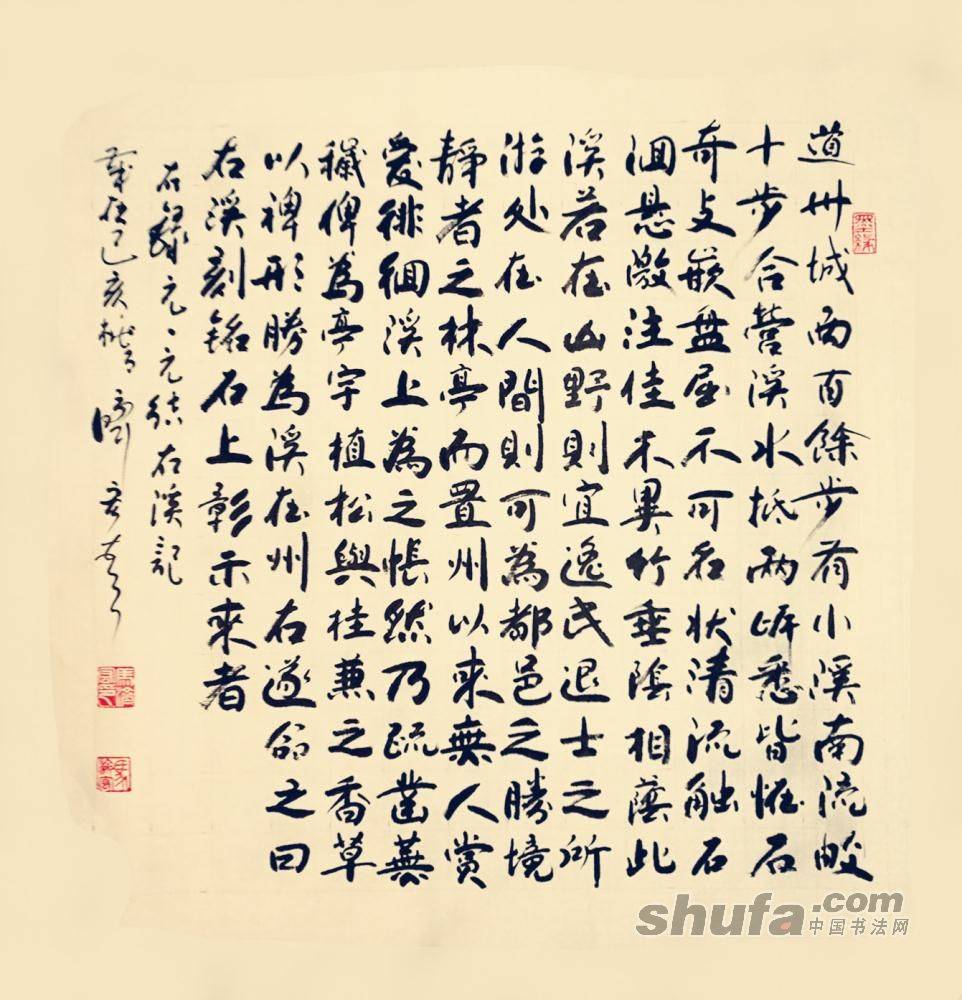 道州城西百餘步有小溪南流數
十步合營溪水抵兩岸悉皆怪石
奇攴嵌盤屈不可名状清流触石
洄懸激注佳木異竹垂陰相蔭此
溪若在山野則宜逸民退士之所
游处在人間則可為都邑之勝境
靜者之林亭而置州以來無人賞
愛徘徊溪上為之悵然乃疏鑿蕪
穢俾為亭宇植松與桂兼之香草
以裨形勝為溪在州右遂命之曰
右溪刻銘石上彰示來者
右錄元、元結右溪記
歲在己亥
shufa.com
中国书法网